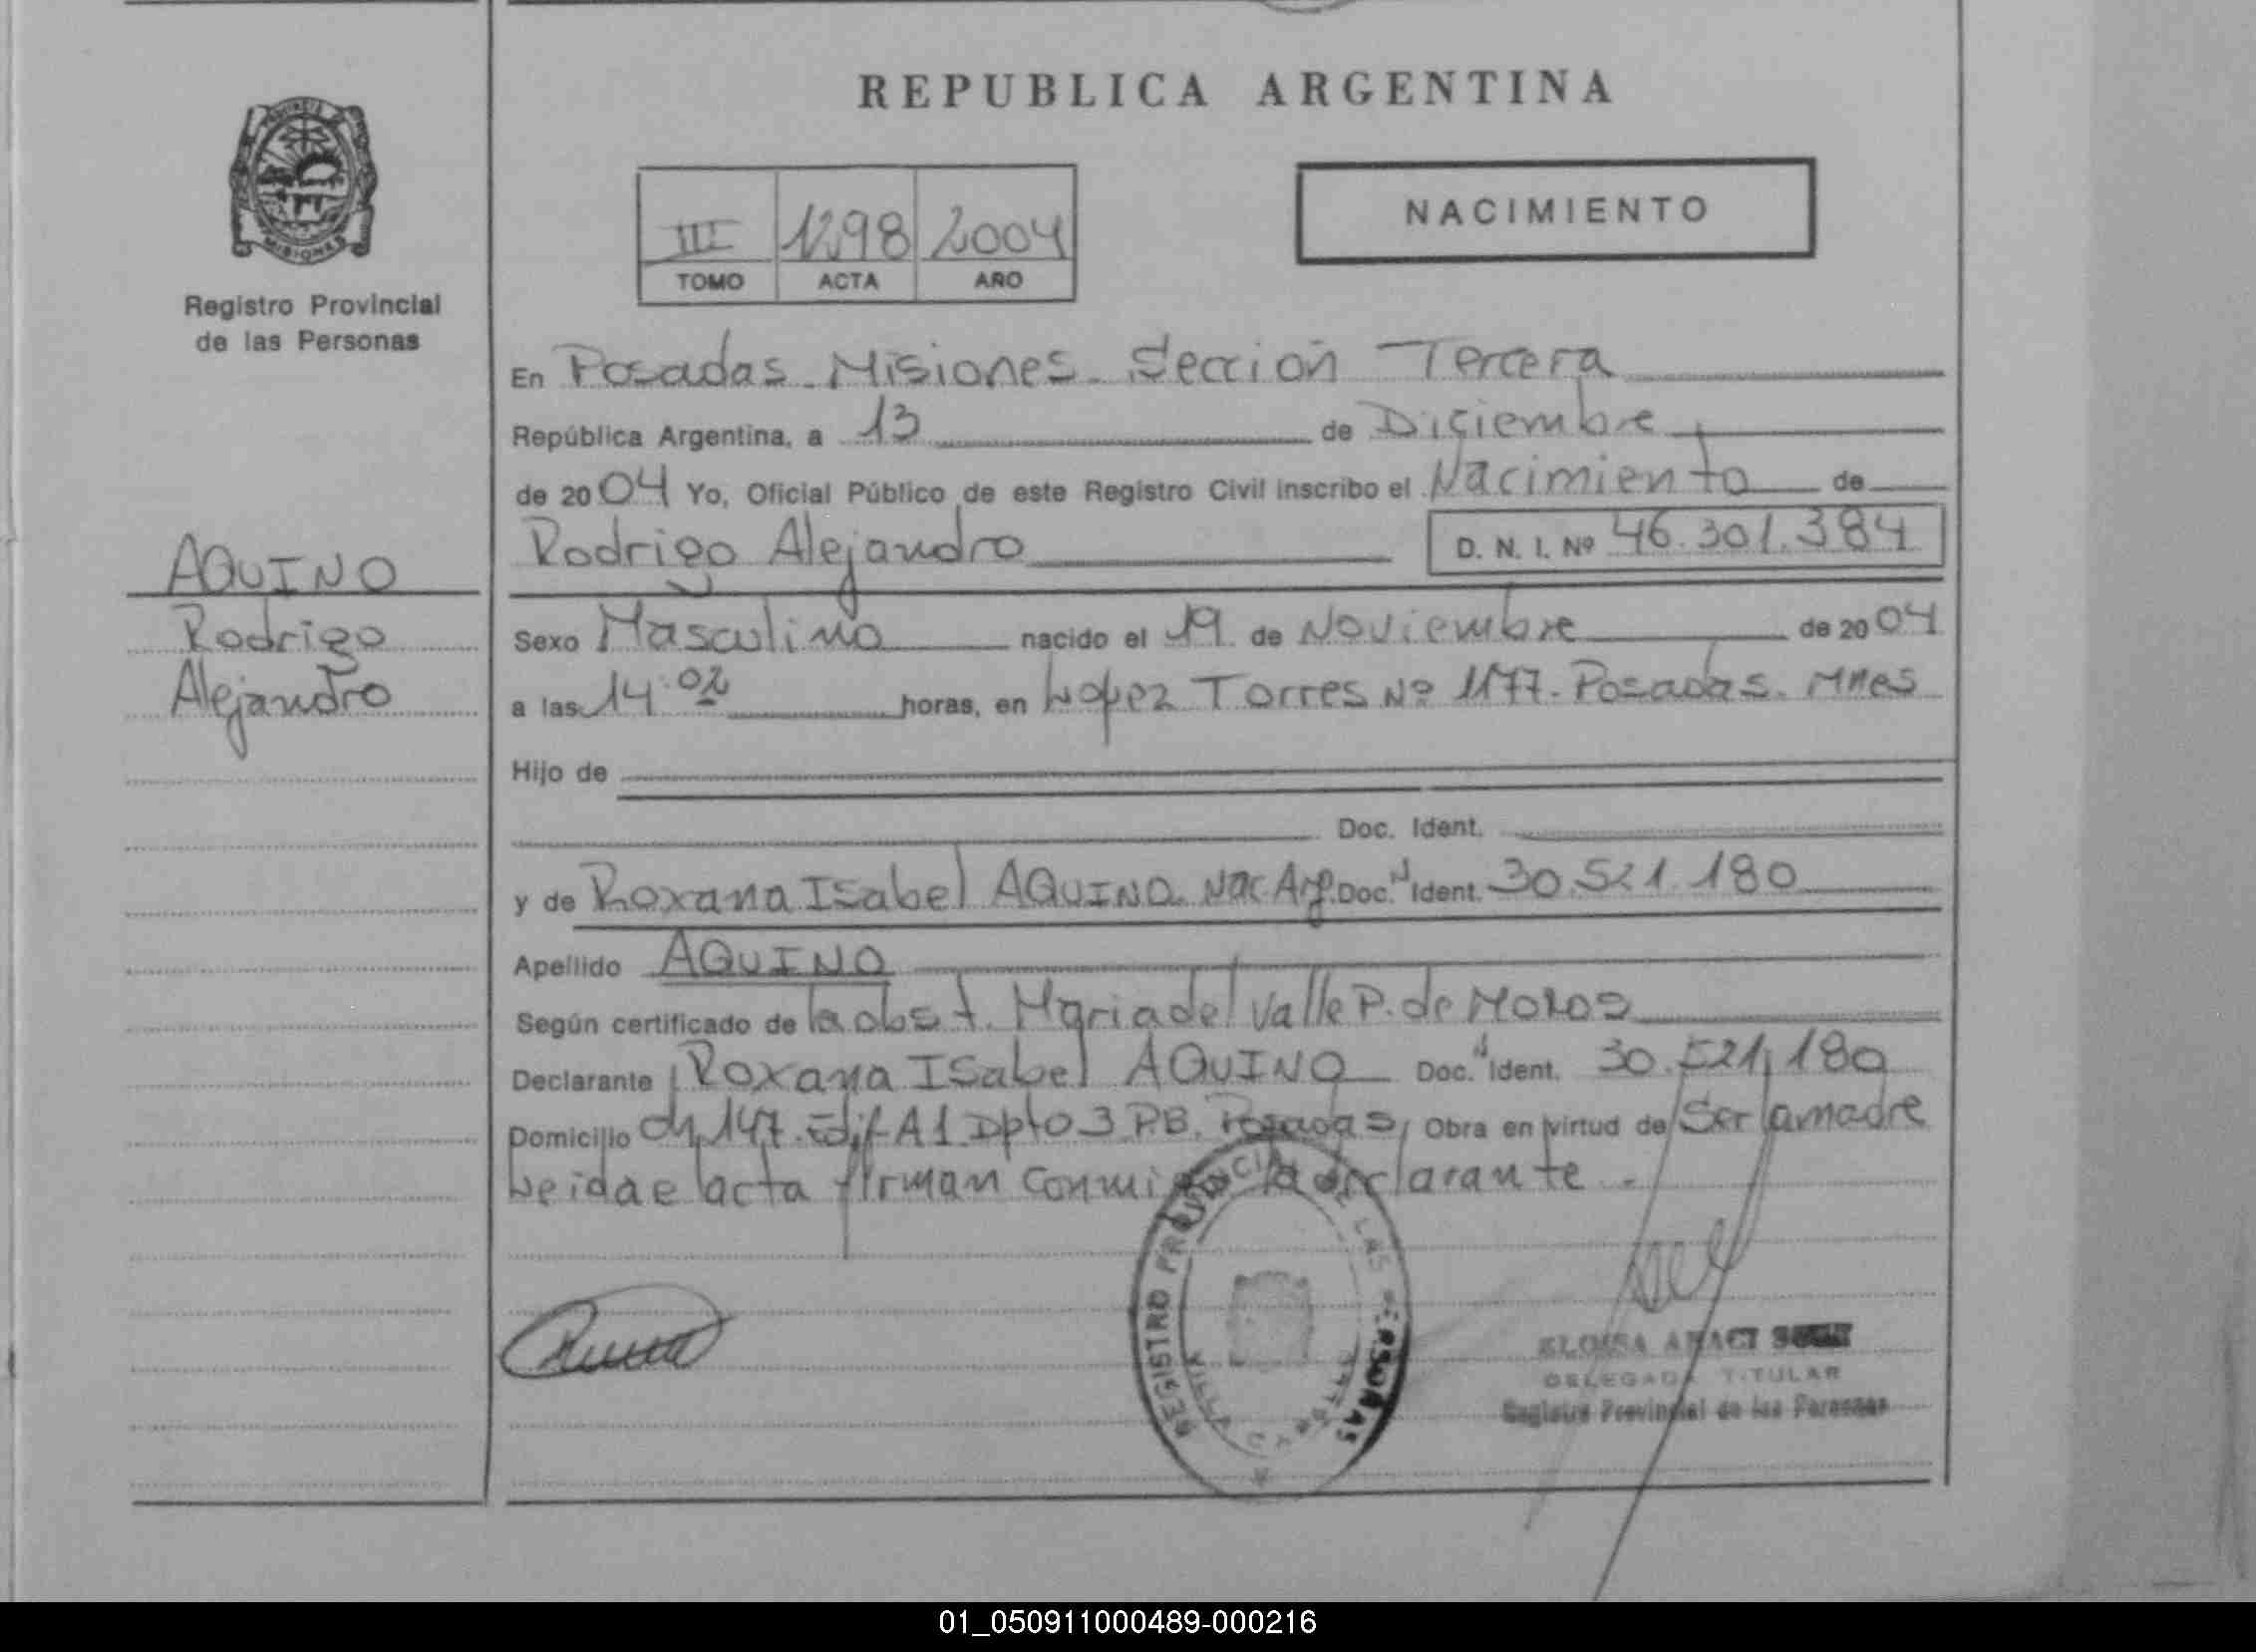 REPUBLICA ARGENTINA
PROVINCIA
MISIONES
Registro Provincial
de las Personas
III 1298 2004
TOMO ACTA AÑO
NACIMIENTO
En Posadas - Misiones - Sección Tercera
República Argentina, a 13 de Diciembre
de 2004 Yo, Oficial Público de este Registro Civil inscribo el Nacimiento de
Rodrigo Alejandro D. N. I. Nº 46.301.384
AQUINO
Rodrigo
Alejandro
Sexo Masculino nacido el 19 de Noviembre de 2004
a las 14.02 horas, en López Torres Nº 1177. Posadas. Mnes
Hijo de
Doc. Ident.
y de Roxana Isabel AQUINO. Nac Arg. Doc. Ident. 30.521.180
Apellido AQUINO
Según certificado de la obst. Maria del Valle P. de
Declarante Roxana Isabel AQUINO Doc. Ident. 30.521.180
Domicilio Ch 147. Edif A1 Dpto 3 P.B. Posadas Obra en virtud de Ser la madre
Leida el acta firman conmigo la declarante.
REGISTRO PROVINCIAL DE LAS PERSONAS
ELOISA
DELEGADA TITULAR
Registro Provincial de las Personas
01_050911000489-000216